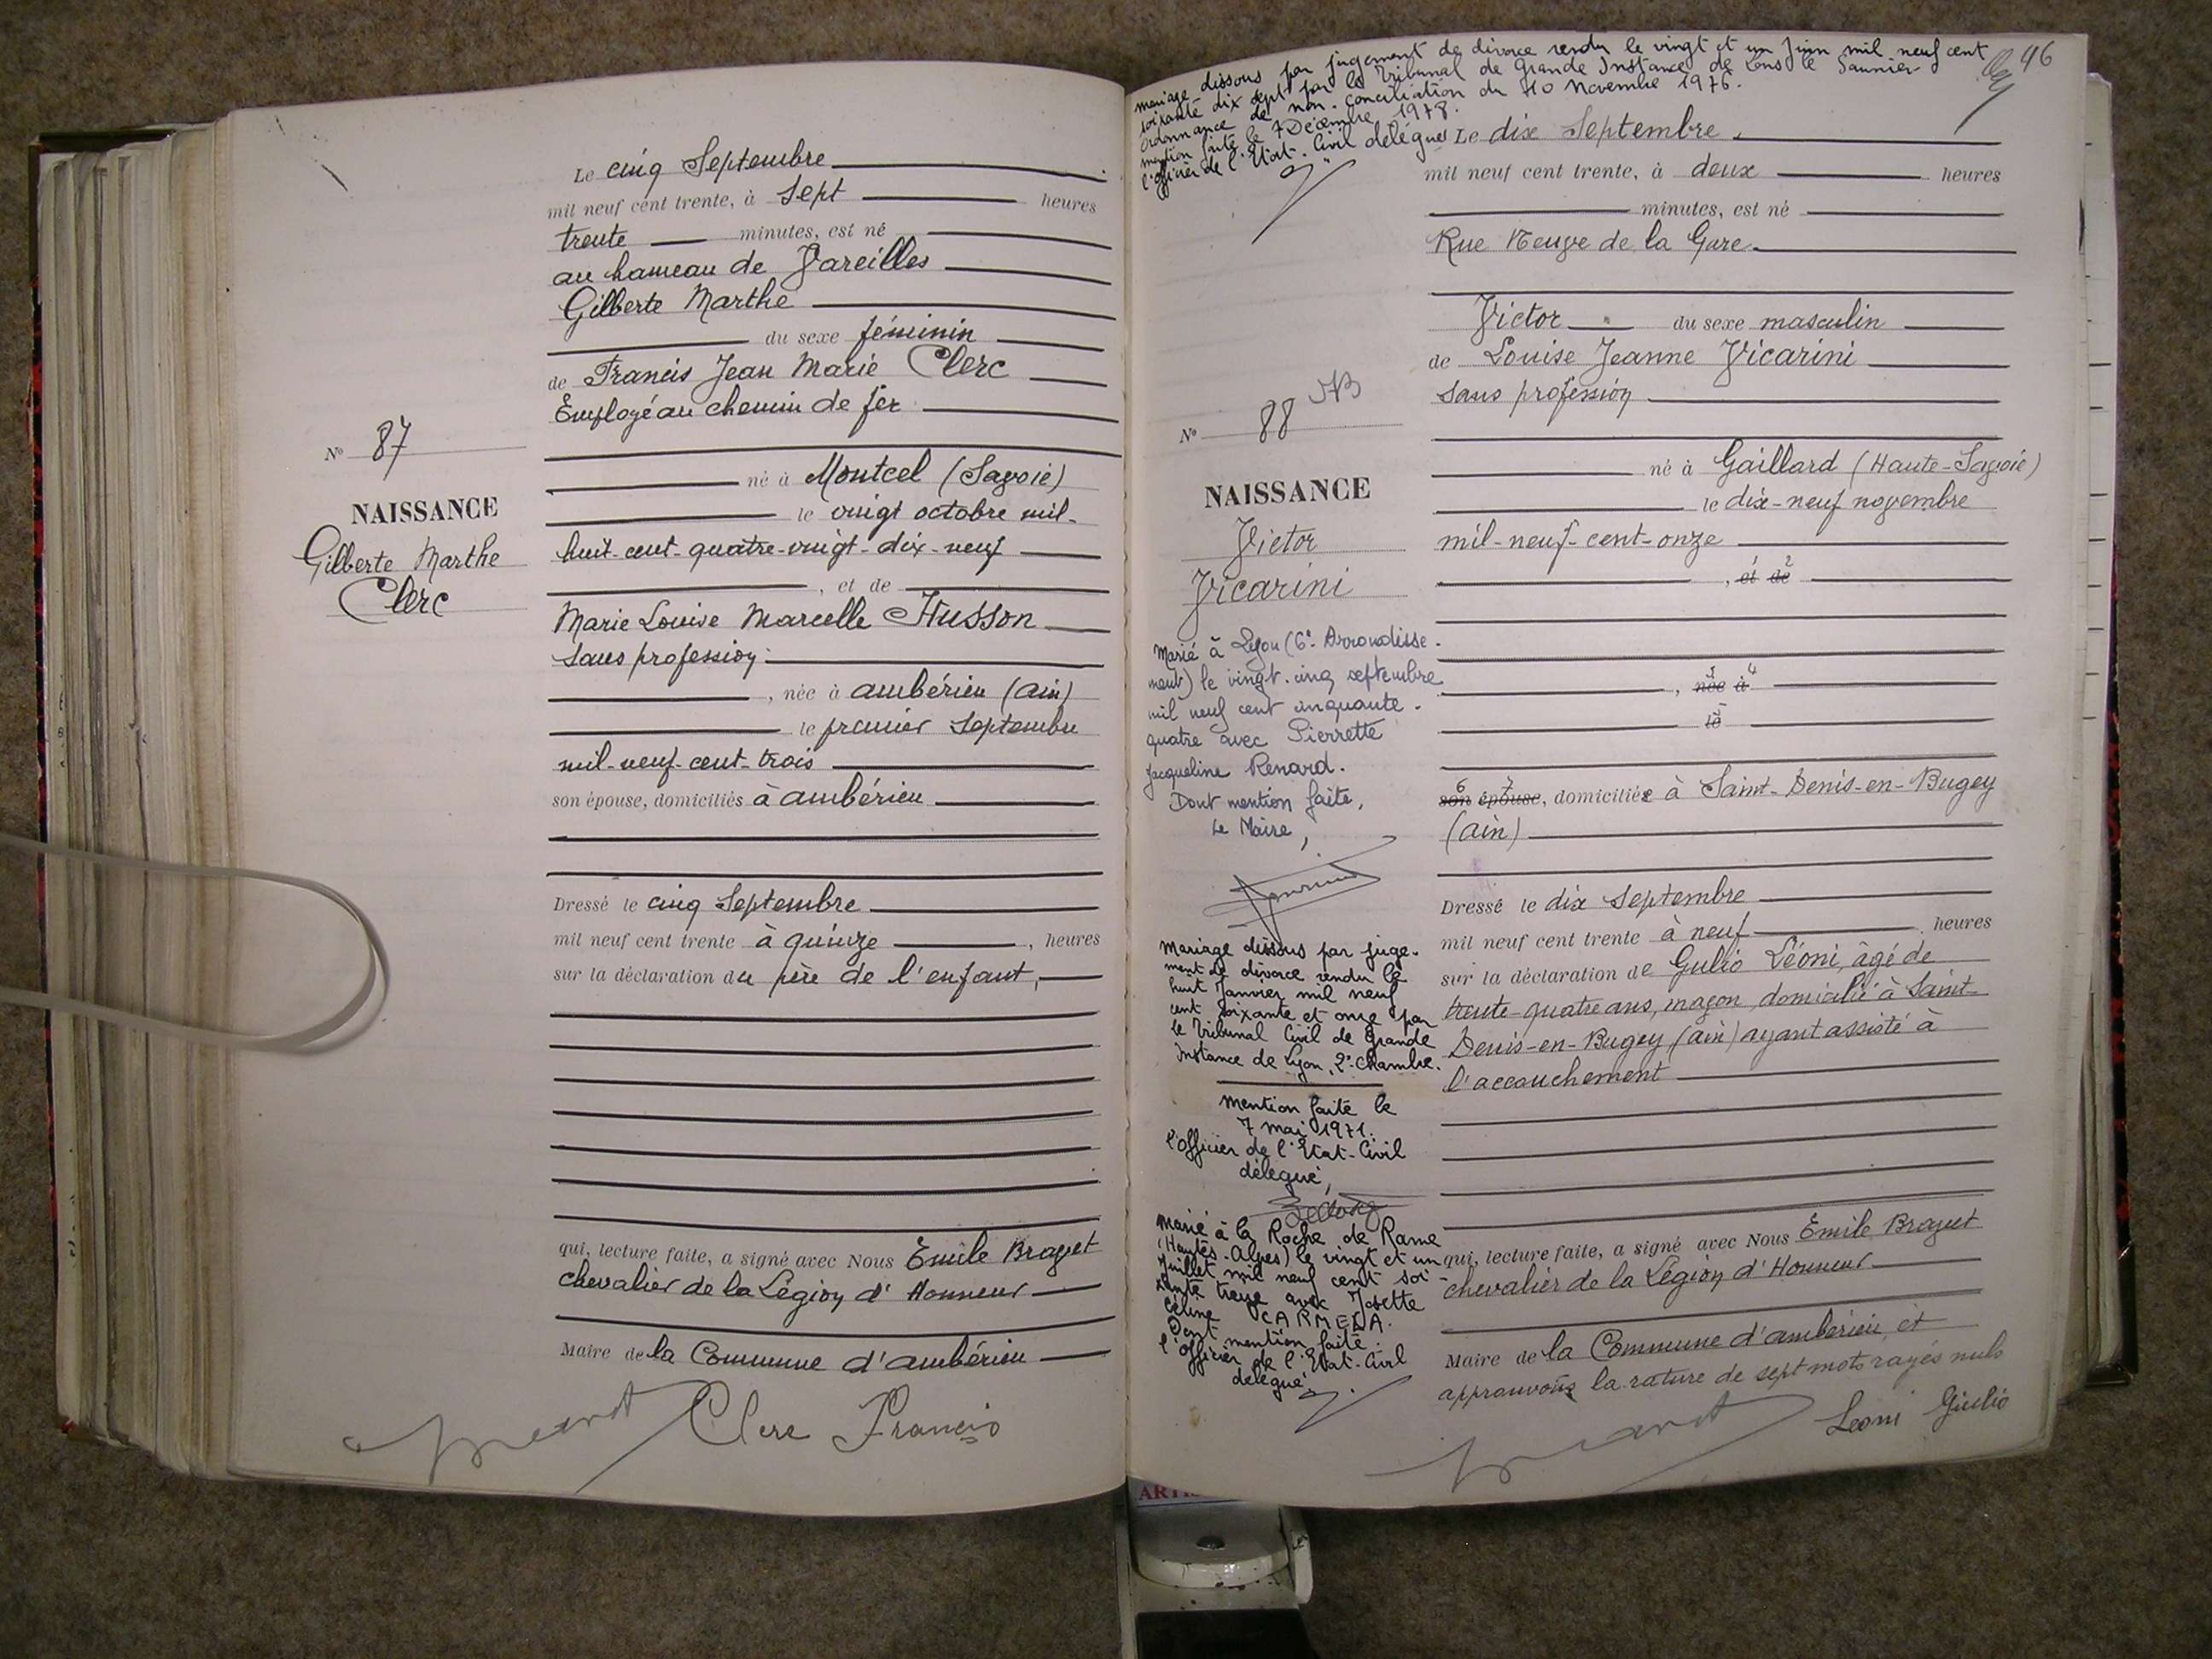 Le cinq Septembre
mil neuf cent trente, à sept heures
trente minutes, est né
au hameau de Vareilles
Gilberte Marthe
du sexe féminin
de Francis Jean Marie Clerc
Employé au chemin de fer
né à Montcel (Savoie)
le vingt octobre mil-
huit-cent-quatre-vingt-dix-neuf
, et de
Marie Louise Marcelle Husson
sans profession
, née à ambérieu (ain)
le premier Septembre
mil-neuf-cent-trois
son épouse, domiciliés à ambérieu
Dressé le cinq Septembre
mil neuf cent trente à quinze , heures
sur la déclaration du père de l'enfant,
qui, lecture faite, a signé avec Nous Emile Bravet
chevalier de la Légion d'Honneur
Maire de la Commune d'ambérieu
Clerc Francis
N° 87
NAISSANCE
Gilberte Marthe
Clerc
mariage dissous par jugement de divorce rendu le vingt et un Juin mil neuf cent
soixante dix sept par le Tribunal de Grande Instance de Lons le Saunier
Ordonnance de non-conciliation du 10 Novembre 1976.
mention faite le 7 Décembre 1978.
l'officier de l'Etat-Civil délégué
96
Le dix Septembre
mil neuf cent trente, à deux heures
minutes, est né
Rue Neuve de la Gare
Victor du sexe masculin
de Louise Jeanne Vicarini
sans profession
né à Gaillard (Haute-Savoie)
le dix-neuf novembre
mil-neuf-cent-onze
, et de
1 2
, née à
3 4
le
5
son épouse, domiciliée à Saint-Denis-en-Bugey
6 7
(ain)
Dressé le dix Septembre
mil neuf cent trente à neuf heures
sur la déclaration de Gulio Léoni, âgé de
trente-quatre ans, maçon, domicilié à Saint-
Denis-en-Bugey (ain) ayant assisté à
l'accouchement
qui, lecture faite, a signé avec Nous Emile Bravet
chevalier de la Légion d'Honneur
Maire de la Commune d'ambérieu, et
approuvons la rature de sept mots rayés nuls
Leoni Giulio
N° 88
NAISSANCE
Victor
Vicarini
Marié à Lyon (6e Arrondisse-
ment) le vingt-cinq septembre
mil neuf cent cinquante-
quatre avec Pierrette
Jacqueline Renard.
Dont mention faite,
Le Maire,
Mariage dissous par juge-
ment de divorce rendu le
huit Janvier mil neuf
cent soixante et onze par
le Tribunal Civil de Grande
Instance de Lyon, 2e chambre.
mention faite le
7 mai 1971.
l'Officier de l'Etat-Civil
délégué,
Marié à la Roche de Rame
(Hautes-Alpes) le vingt et un
Juillet mil neuf cent soi-
xante treize avec Josette
Céline CARMEDA.
Dont mention faite.
l'Officier de l'Etat-Civil
délégué
ARTI